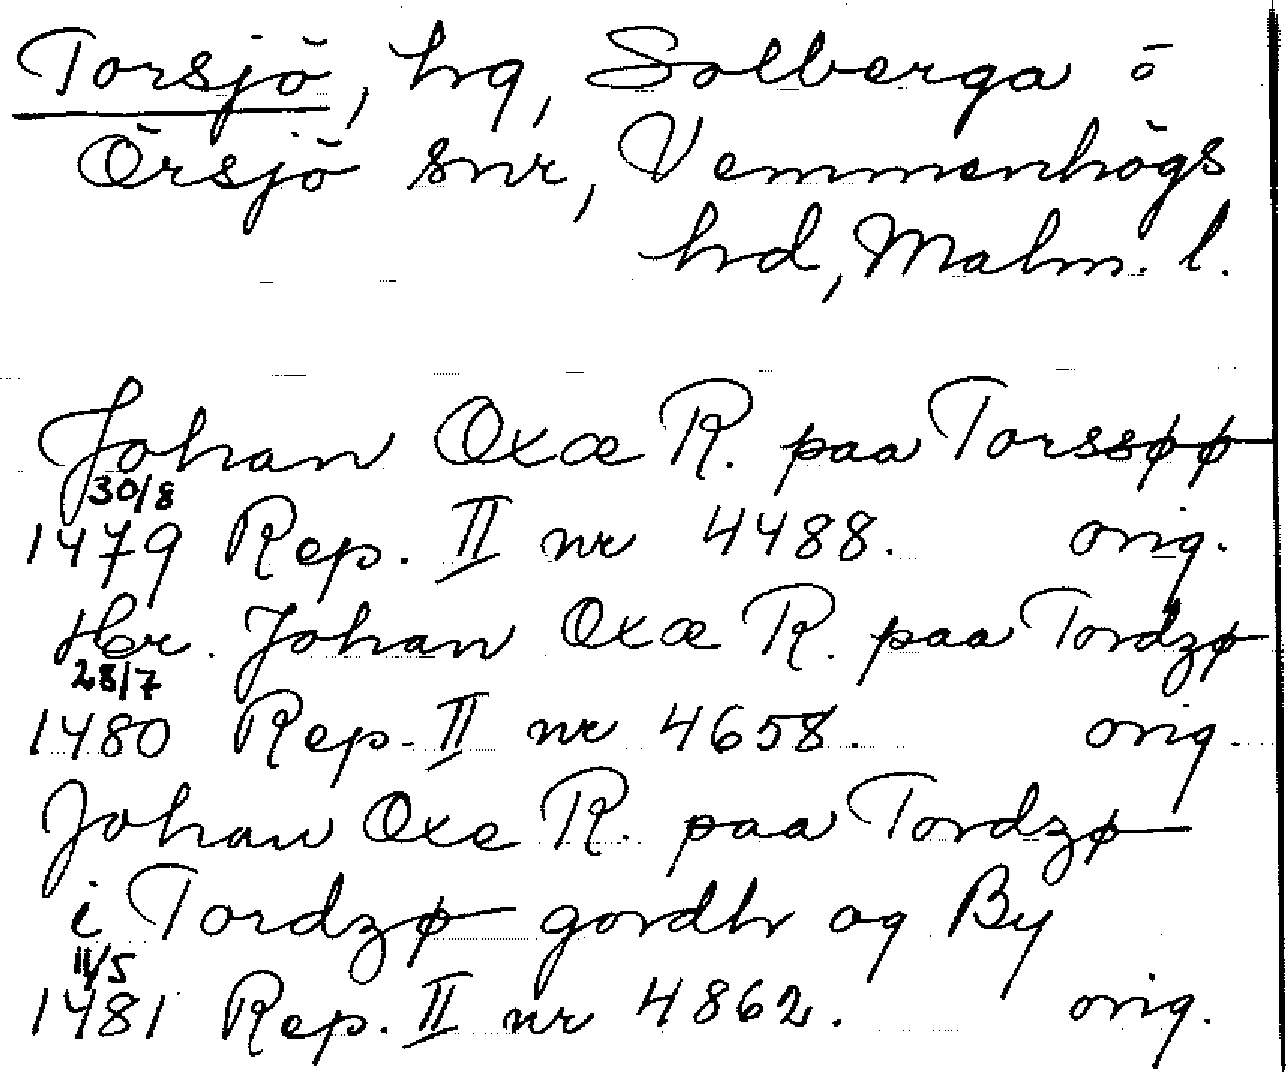 Torsjö, hg, Solberga o
Örsjö snr, Vemmenhögs
hrd, Malm. l.
Johan Oxæ R. paa Torssøø
30/8
1479 Rep. II nr 4488. orig.
Hr. Johan Oxæ R. paa Tordzø
28/7
1480 Rep. II nr 4658. orig.
Johan Oxe R. paa Tordzø
i Tordzø gordh og By
11/5
1481 Rep. II nr 4862. orig.